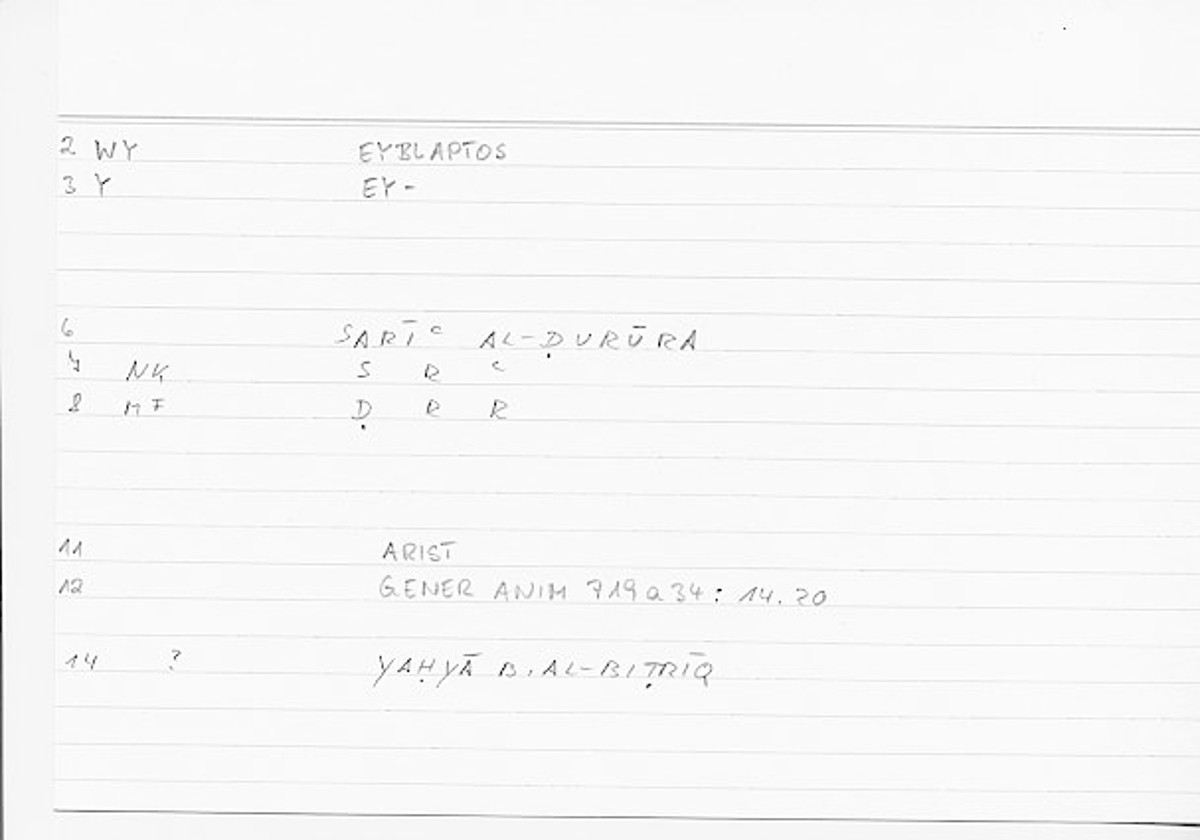 2 WY EYBLAPTOS
3 Y EY-
6 SARĪʿ AL-ḌURŪRA
7 NK S R ʿ
8 MF Ḍ R R
11 ARIST
12 GENER ANIM 719a34: 14.20
14 ? YAḤYĀ B. AL-BIṬRĪQ